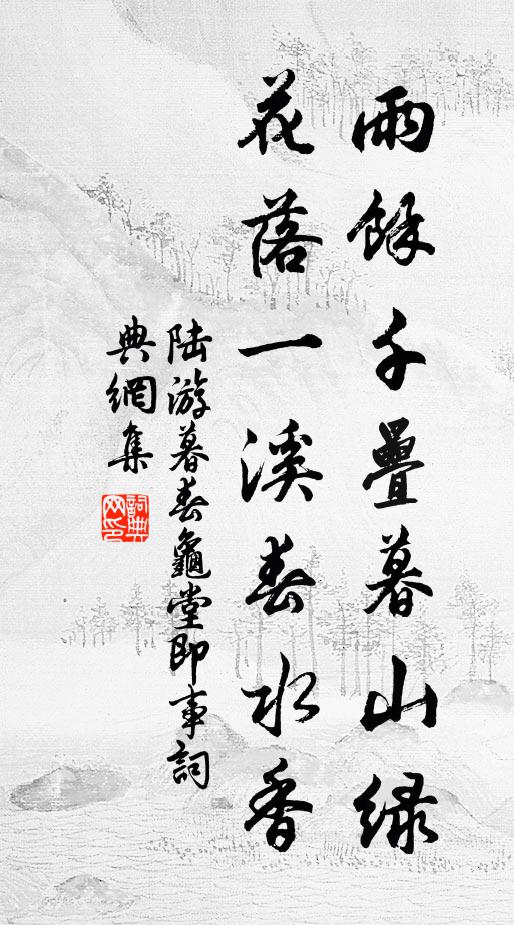 雨餘千疊暮山綠
花落一溪春水香
陸游暮春龜堂即事詞
典網集
詞典
网印